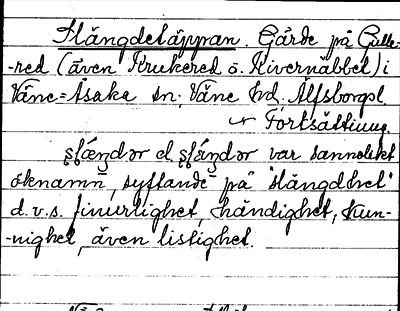 Slängdetäppan. Gärde på Gulle-
-red (även Krukered o. Kivernabbet) i
Väne-Åsaka sn; Väne hd, Älfsborgs l.
Fortsättning.
el. var sannolikt
öknamn, syftande på "slängdhet"
d.v.s. finurlighet, händighet, kun-
-nighet, även listighet.